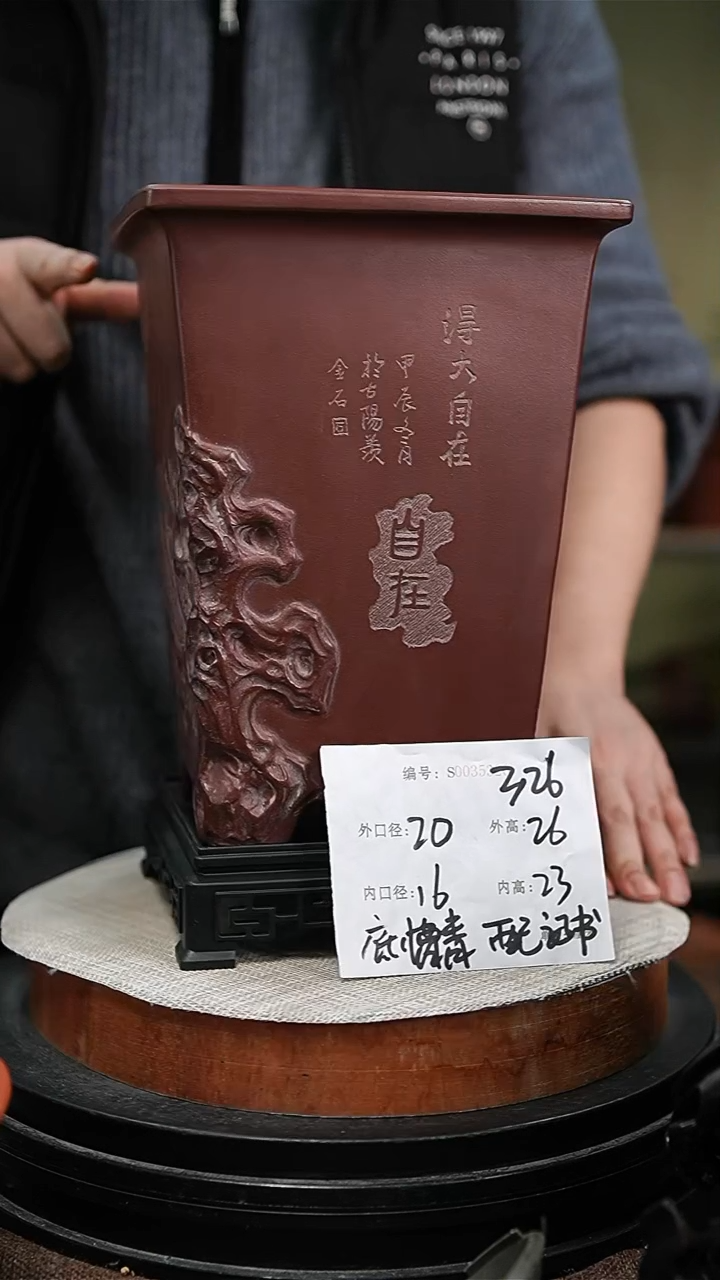 SINCE 1997
PARIS
LONDON
得大自在
甲辰冬月
於古陽羨
金石囩
自在
编号: S00353
326
外口径:20 外高:26
内口径:16 内高:23
配证书